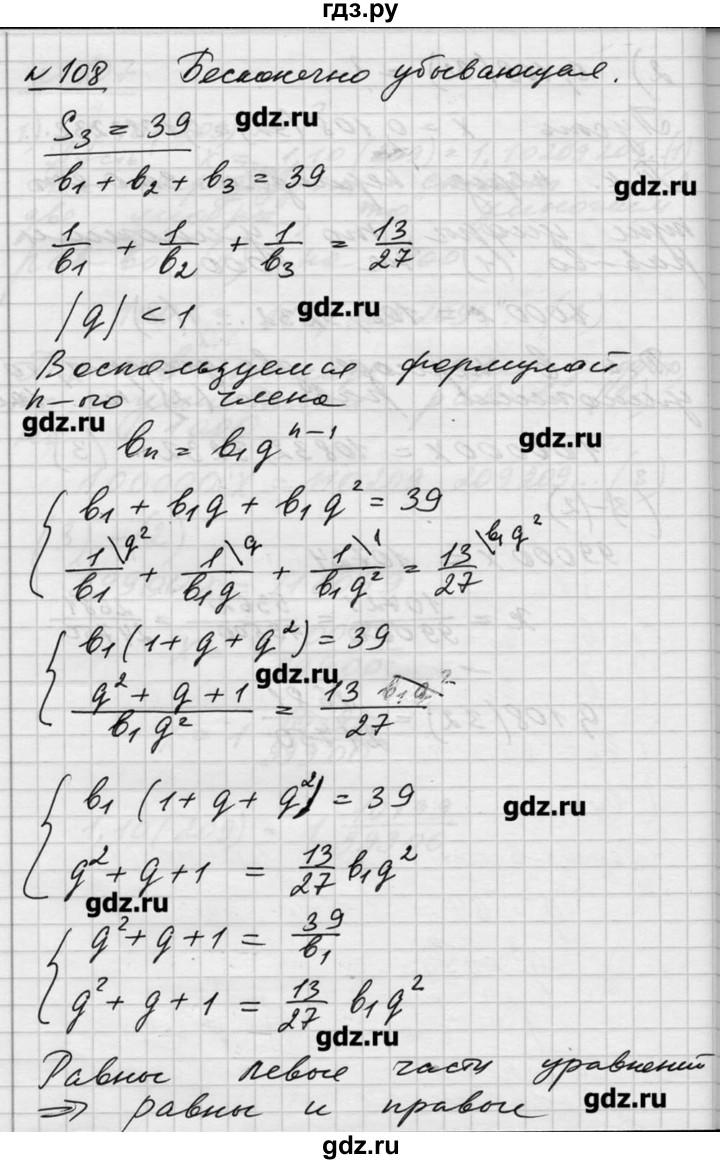 гдз.ру
№ 108 Бесконечно убывающая.
S₃ = 39 gdz.ru
b₁ + b₂ + b₃ = 39 gdz.ru
1/b₁ + 1/b₂ + 1/b₃ = 13/27
|q| < 1 gdz.ru
Воспользуемся формулой
n-го члена
gdz.ru bₙ = b₁qⁿ⁻¹ gdz.ru
{ b₁ + b₁q + b₁q² = 39
1\q²/b₁ + 1\q/b₁q + 1\1/b₁q² = 13\b₁q²/27
{ b₁(1 + q + q²) = 39
gdz.ru
q² + q + 1/b₁q² = 13 b₁q²/27
{ b₁ (1 + q + q²) = 39 gdz.ru
q² + q + 1 = 13/27 b₁q²
gdz.ru
{ q² + q + 1 = 39/b₁
q² + q + 1 = 13/27 b₁q²
gdz.ru
Равны левые части уравнений
⇒ равны и правые gdz.ru
gdz.ru